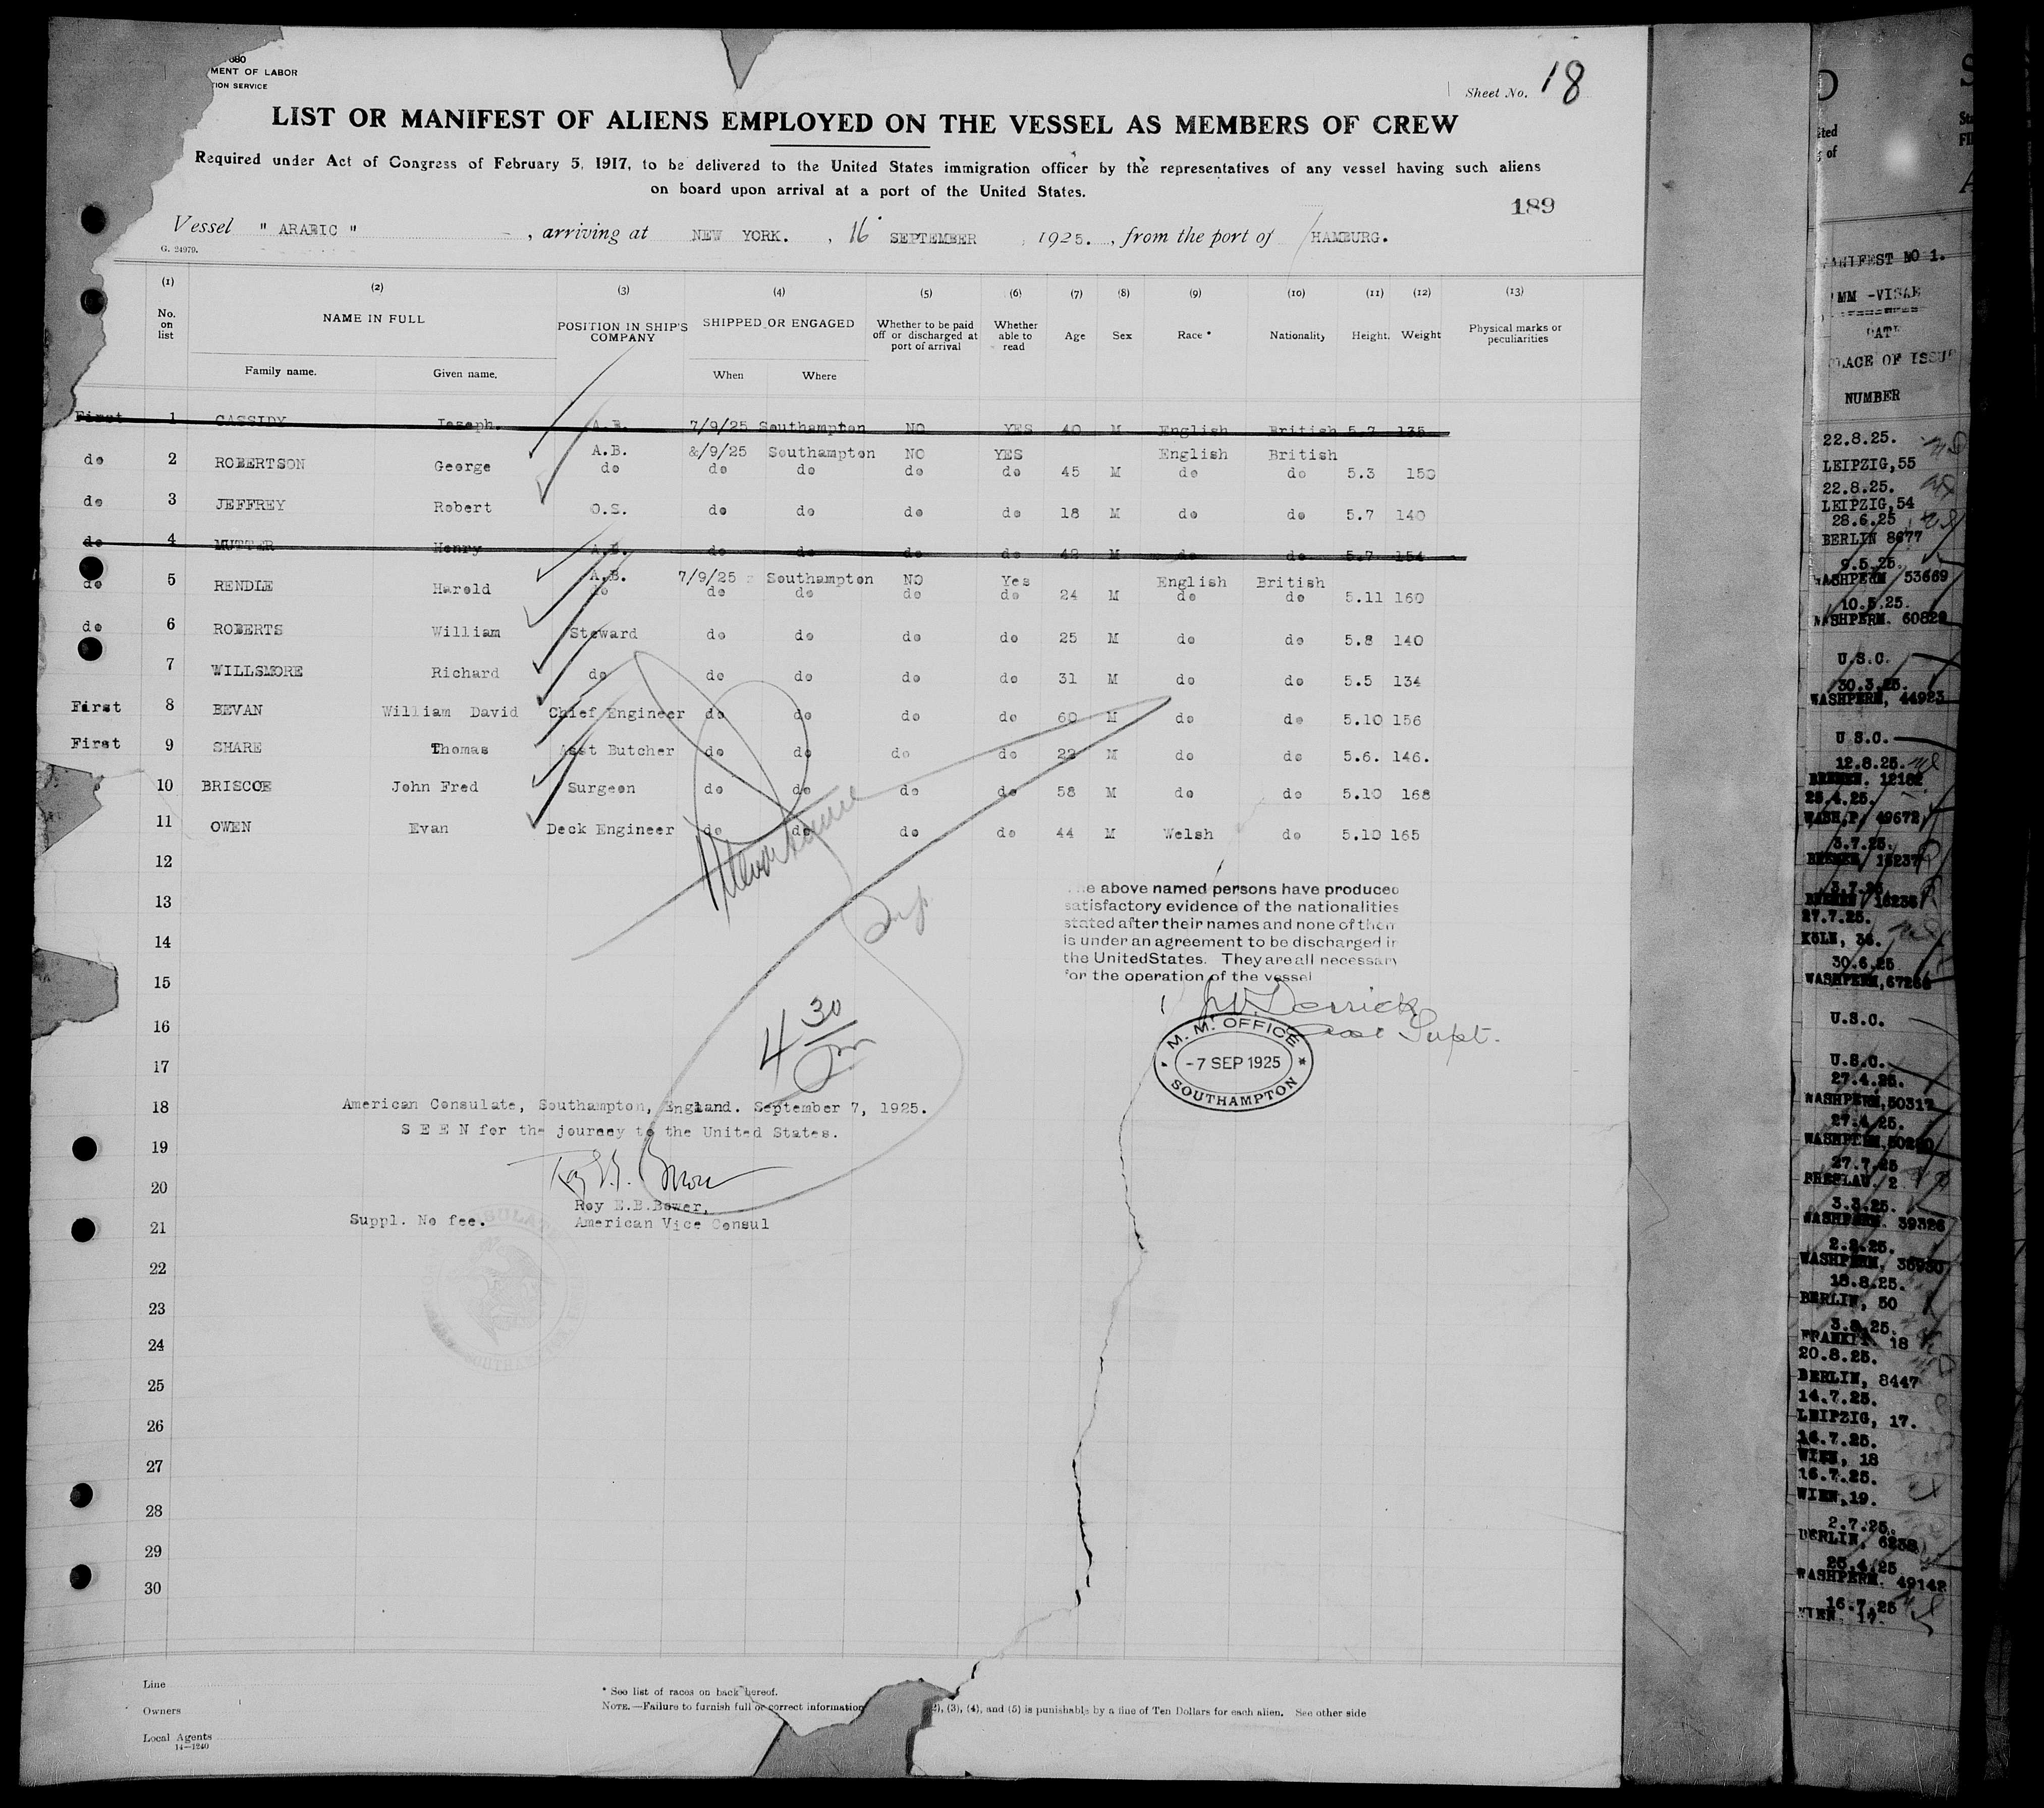 680
MENT OF LABOR
TION SERVICE
Sheet No. 18
LIST OR MANIFEST OF ALIENS EMPLOYED ON THE VESSEL AS MEMBERS OF CREW
Required under Act of Congress of February 5, 1917, to be delivered to the United States immigration officer by the representatives of any vessel having such aliens
on board upon arrival at a port of the United States.
189
Vessel " ARABIC " , arriving at NEW YORK. , 16 SEPTEMBER , 1925. , from the port of HAMBURG.
G. 24979.
(1) (2) (3) (4) (5) (6) (7) (8) (9) (10) (11) (12) (13)
No. on list NAME IN FULL POSITION IN SHIP'S COMPANY SHIPPED OR ENGAGED Whether to be paid off or discharged at port of arrival Whether able to read Age Sex Race * Nationality Height. Weight Physical marks or peculiarities
Family name. Given name. When Where
First 1 CASSIDY Joseph. A.B. 7/9/25 Southampton NO YES 40 M English British 5.7 135
A.B. &/9/25 Southampton NO YES English British
do 2 ROBERTSON George do do do do do 45 M do do 5.3 150
do 3 JEFFREY Robert O.S. do do do do 18 M do do 5.7 140
do 4 MUTTER Henry A.B. do do do do 42 M do do 5.7 154
A.B. 7/9/25 Southampton NO Yes English British
do 5 RENDLE Harold do do do do do 24 M do do 5.11 160
do 6 ROBERTS William Steward do do do do 25 M do do 5.8 140
7 WILLSMORE Richard do do do do do 31 M do do 5.5 134
First 8 BEVAN William David Chief Engineer do do do do 60 M do do 5.10 156
First 9 SHARE Thomas Asst Butcher do do do do 22 M do do 5.6. 146.
10 BRISCOE John Fred Surgeon do do do do 58 M do do 5.10 168
11 OWEN Evan Deck Engineer do do do do 44 M Welsh do 5.10 165
12
13
14
15
16
17
18
19
20
21
22
23
24
25
26
27
28
29
30
e above named persons have produced
satisfactory evidence of the nationalities
stated after their names and none of them
is under an agreement to be discharged in
the United States. They are all necessary
for the operation of the vessel
Derrick
Supt.
M. M. OFFICE
-7 SEP 1925
SOUTHAMPTON
4 30
pm
American Consulate, Southampton, England. September 7, 1925.
S E E N for the journey to the United States.
Roy E.B.Bower,
Suppl. No fee. American Vice Consul
Line
Owners
Local Agents
14—1240
* See list of races on back hereof.
NOTE.—Failure to furnish full or correct information 2), (3), (4), and (5) is punishable by a fine of Ten Dollars for each alien. See other side
MANIFEST NO 1.
IMM -VISAE
DATE
PLACE OF ISSUE
NUMBER
22.8.25.
LEIPZIG,55
22.8.25.
LEIPZIG,54
28.6.25
BERLIN 8677
9.5.25.
WASHPERM 53669
10.5.25.
WASHPERM. 60822
U.S.C.
30.3.25.
WASHPERM, 44923
U.S.C.
12.8.25.
BREMEN. 12182
25.4.25.
WASH.P. 49672
3.7.25.
BREMEN 16237
3.7.25.
BREMEN 16236
27.7.25.
KÖLN, 36.
30.6.25
WASHPERM,67266
U.S.C.
U.S.C.
27.4.25.
WASHPERM,50317
27.4.25.
27.7.25
BRESLAU. 2
3.3.25.
WASHPERM. 39326
2.2.25.
18.8.25.
BERLIN, 50
3.8.25.
FRANKFT. 18
20.8.25.
BERLIN, 8447
14.7.25.
LEIPZIG, 17.
14.7.25.
WIEN, 18
16.7.25.
WIEN,19.
2.7.25.
BERLIN, 6238
25.4.25
WASHPERM. 49142
16.7.25
WIEN, 17.